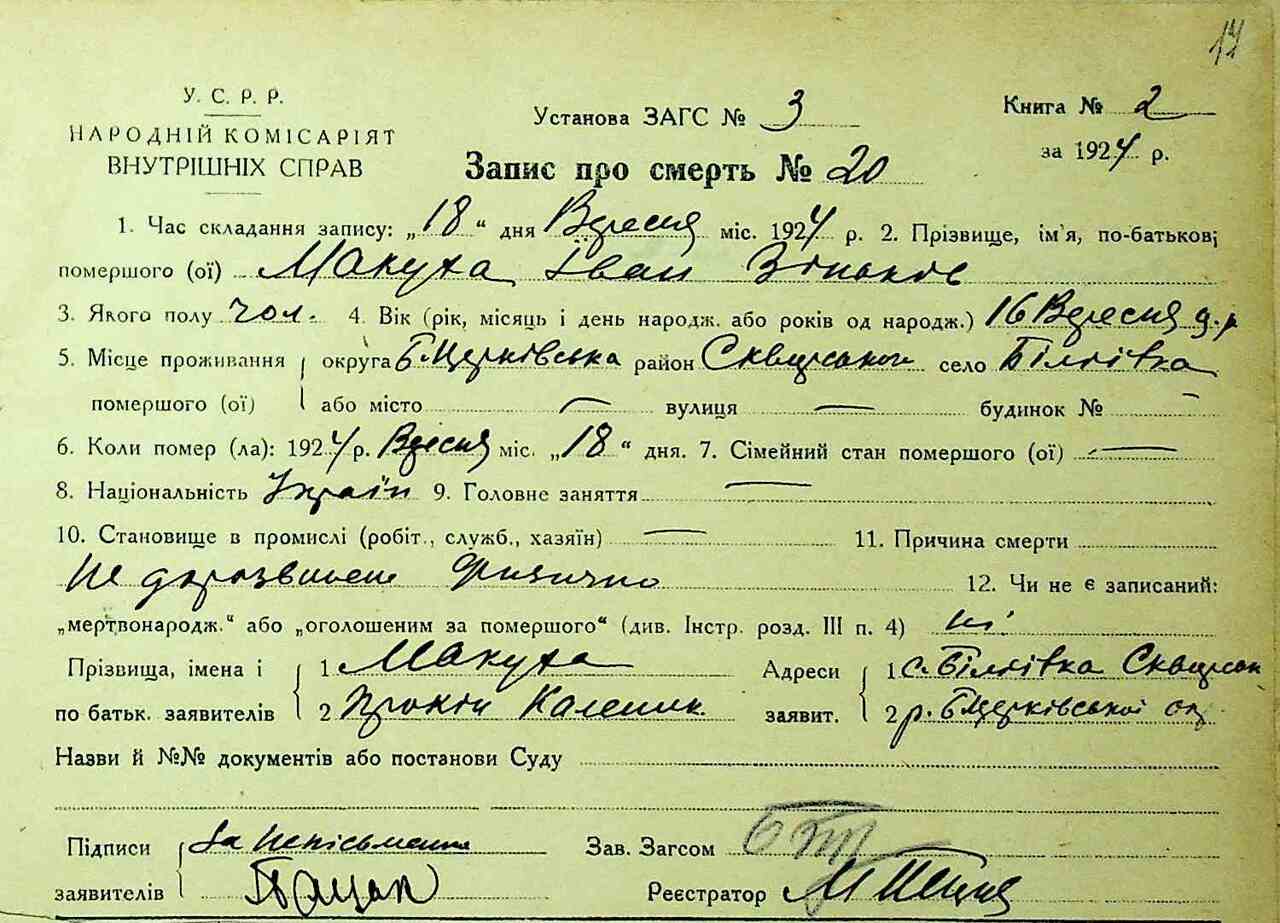 17
У. С. Р. Р.
НАРОДНІЙ КОМІСАРІЯТ
ВНУТРІШНІХ СПРАВ
Установа ЗАГС № 3
Книга № 2
за 1924 р.
Запис про смерть № 20
1. Час складання запису: „18“ дня Вересня міс. 1924 р. 2. Прізвище, ім'я, по-батькові
помершого (ої) Макуха Іван Зіньків
3. Якого полу чол. 4. Вік (рік, місяць і день народж. або років од народж.) 16 Вересня ц.р
5. Місце проживання округа Б Церківська район Сквирського село Білківка
помершого (ої) або місто — вулиця — будинок № –
6. Коли помер (ла): 1924 р. Вересня міс. „18“ дня. 7. Сімейний стан помершого (ої) —
8. Національність Україн 9. Головне заняття —
10. Становище в промислі (робіт., служб., хазяїн) — 11. Причина смерти
не доразвинене Физично 12. Чи не є записаний:
„мертвонародж.“ або „оголошеним за помершого“ (див. Інстр. розд. III п. 4) ні
Прізвища, імена і 1 Макуха Адреси 1 с. Білківка
по батьк. заявителів 2 Прокіп Каленик. заявит. 2 р. Б Церківської ок
Назви й №№ документів або постанови Суду
Підписи За неписьменн Зав. Загсом
заявителів Реєстратор